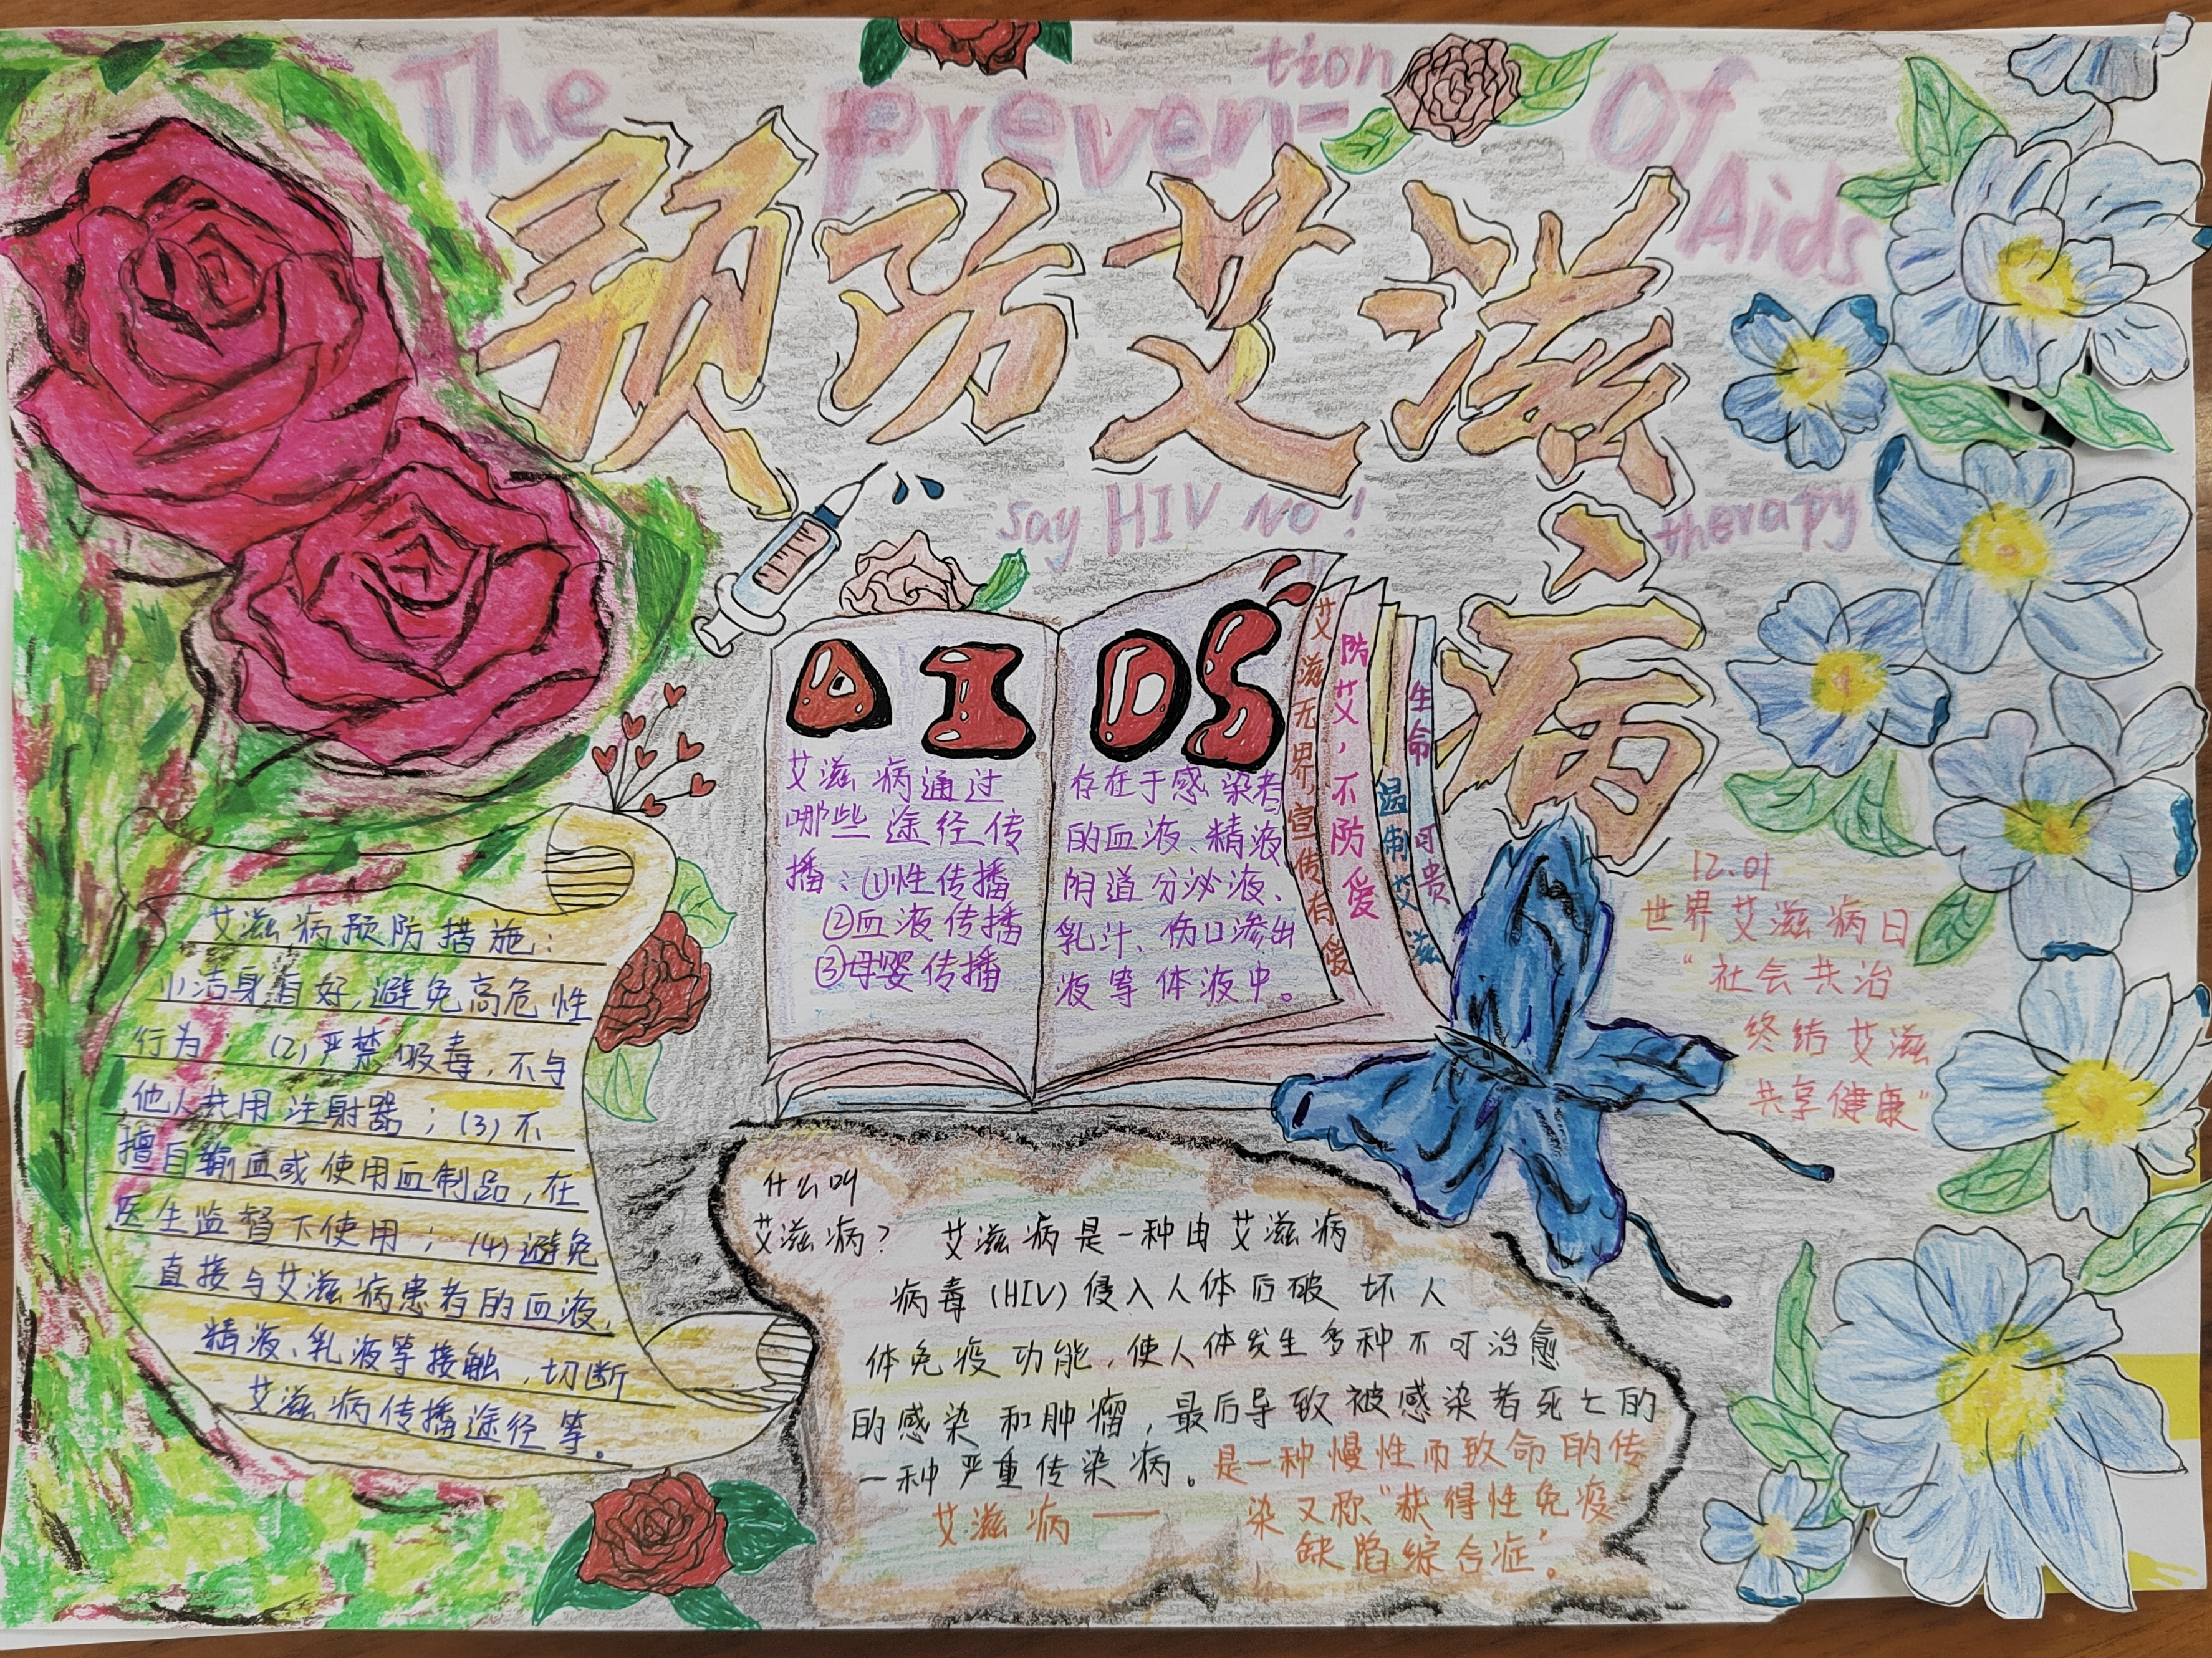 The Preven-
tion
Of
Aids
预防艾滋
病
say HIV No!
therapy
AIDS
艾滋病通过
哪些途径传
播:①性传播
②血液传播
③母婴传播
存在于感染者
的血液、精液
阴道分泌液、
乳汁、伤口渗出
液等体液中。
艾滋无界,宣传有爱
防艾,不防爱
温制艾滋
生命可贵
12.01
世界艾滋病日
“社会共治
终结艾滋
共享健康”
艾滋病预防措施:
(1)洁身自好,避免高危性
行为;(2)严禁吸毒,不与
他人共用注射器;(3)不
擅自输血或使用血制品,在
医生监督下使用;(4)避免
直接与艾滋病患者的血液,
精液、乳液等接触,切断
艾滋病传播途径等。
什么叫
艾滋病? 艾滋病是一种由艾滋病
病毒(HIV)侵入人体后破坏人
体免疫功能,使人体发生多种不可治愈
的感染和肿瘤,最后导致被感染者死亡的
一种严重传染病。
艾滋病——
是一种慢性而致命的传
染又称“获得性免疫
缺陷综合症”。